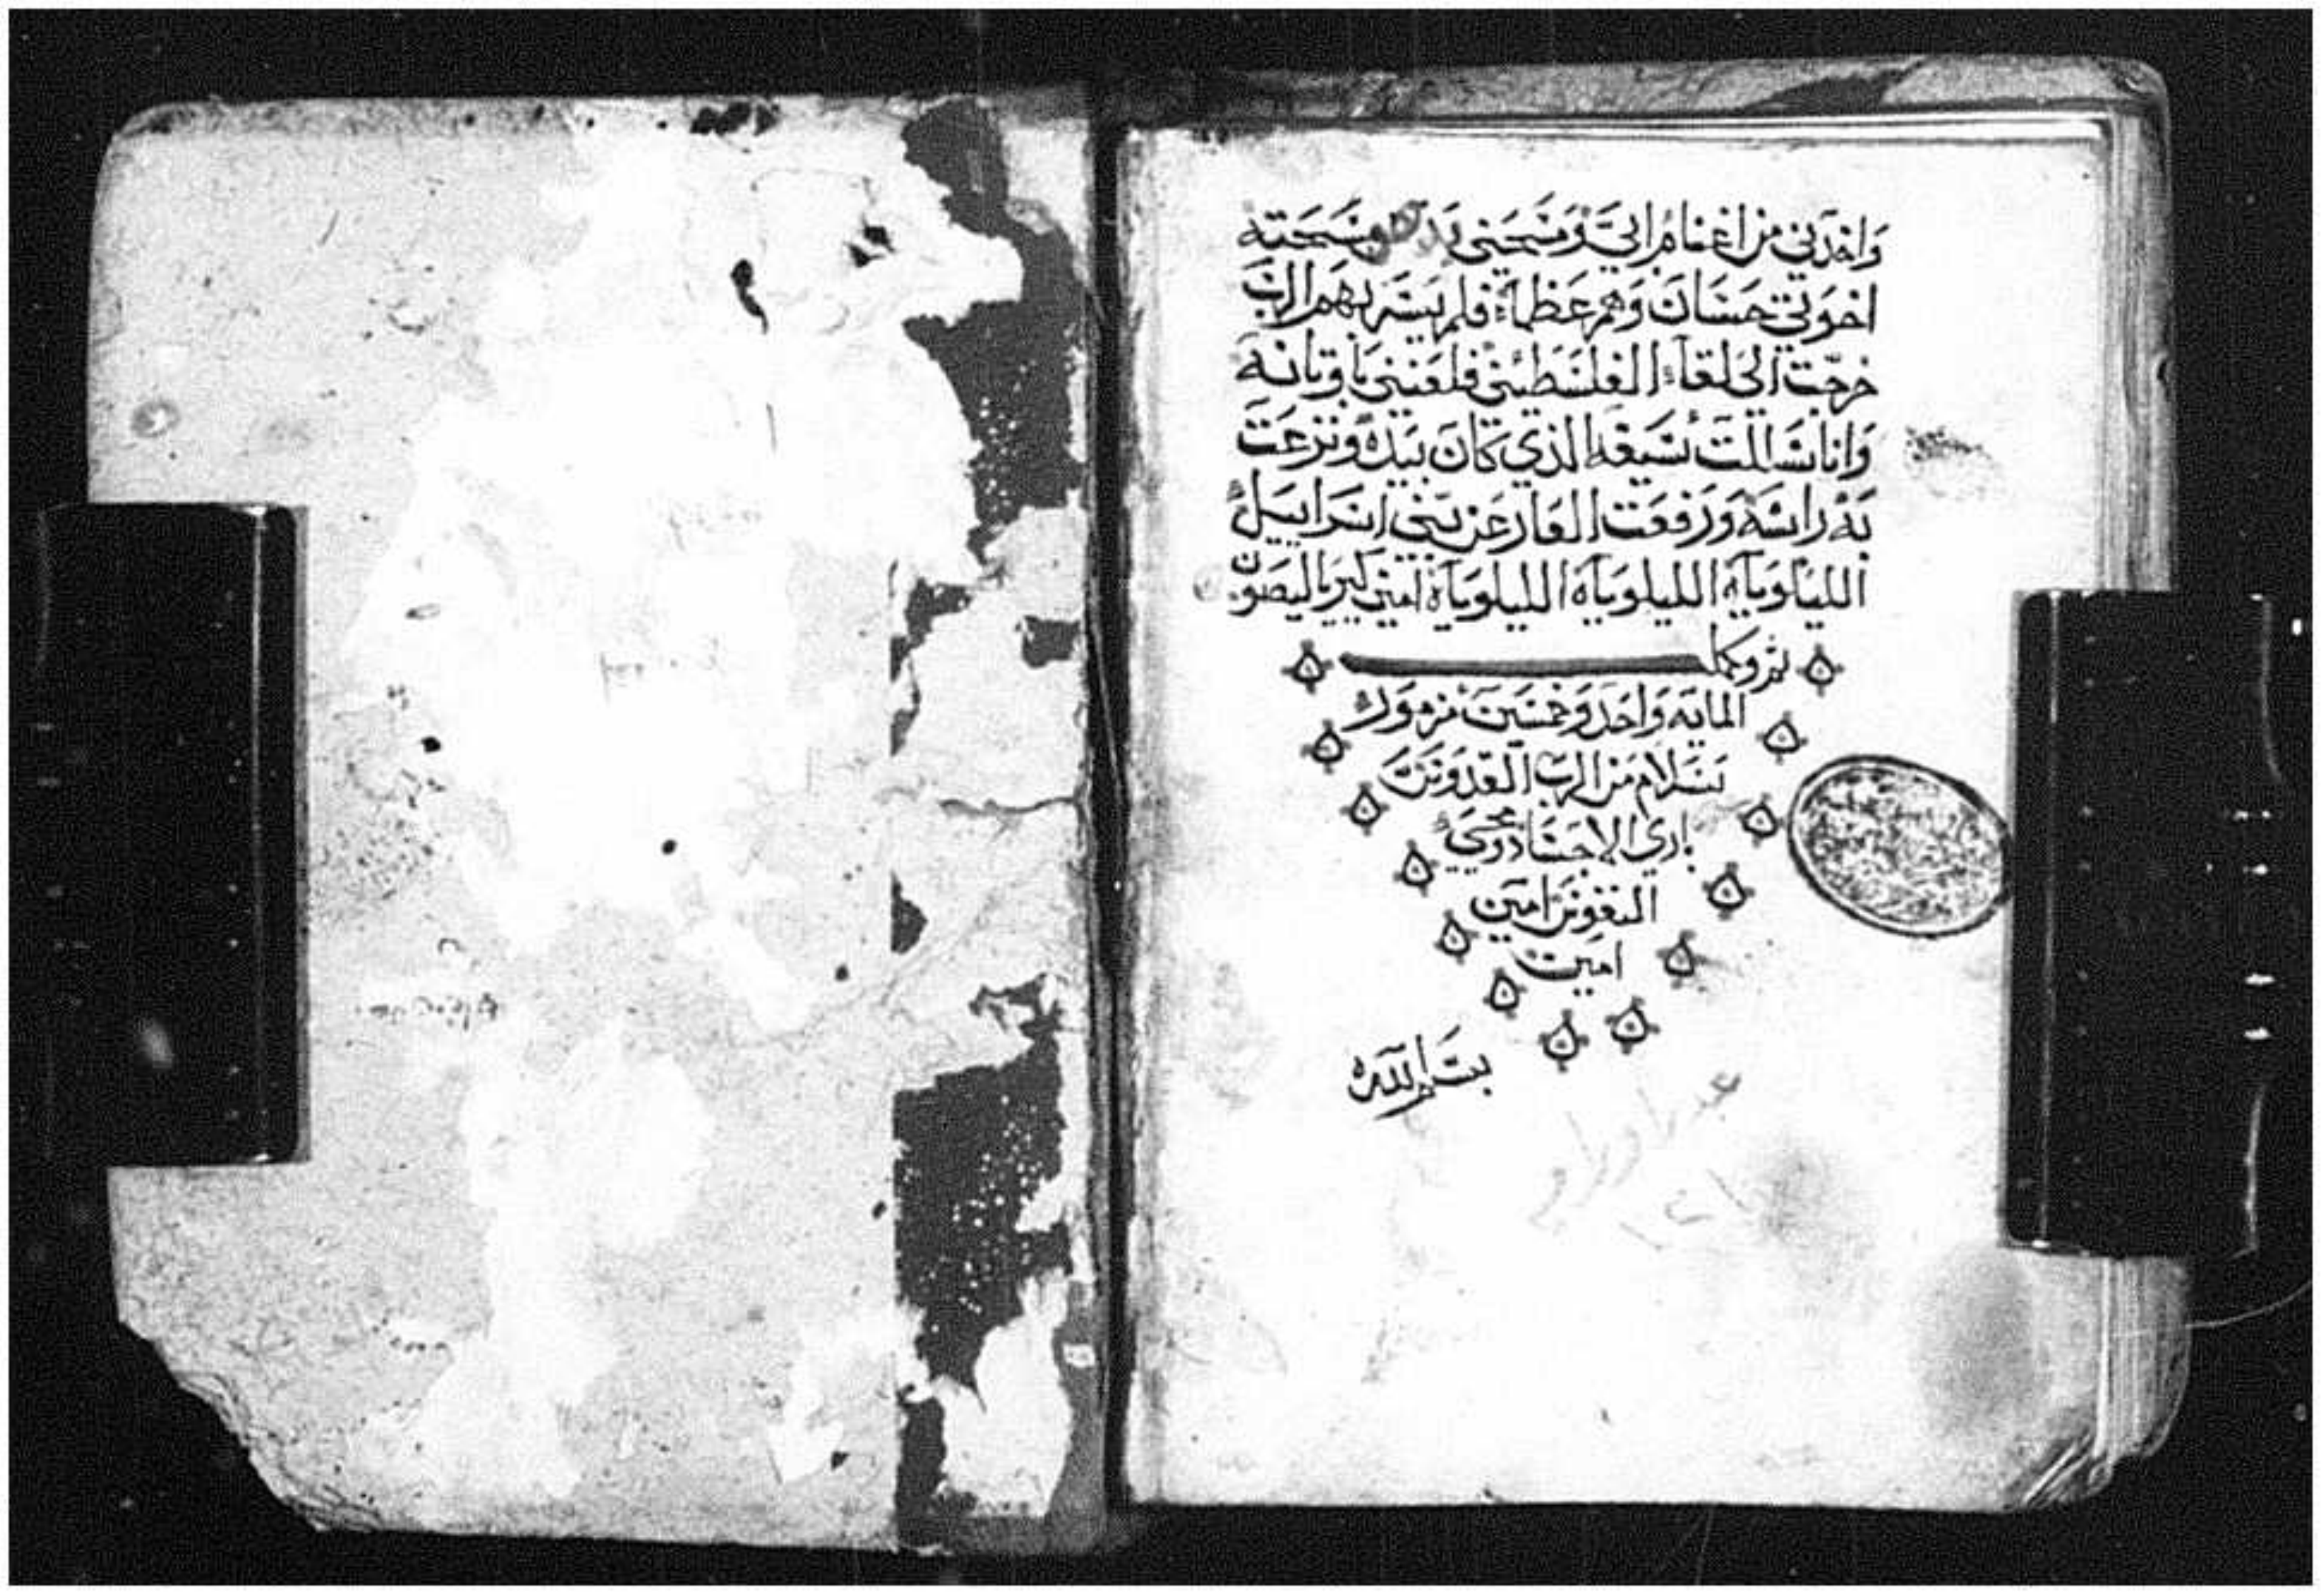 واخدني من اغنام ابي ومسحني بدهن مسحته
اخوتي حسان وهم عظماء فلم يسر بهم الرب
خرجت الي لقاء الفلسطيني فلعنني باوتانه
وانا سللت سيفه الذي كان بيده ونزعت
به راسه ورفعت العار عن بني اسراييل
الليلوياه الليلوياه الليلوياه امين كيرياليصون
تم وكمل
المايه واحد وخمسين مزمور
بسلام من الرب القدوس
باري الاجساد ومحيي
النفوس امين
امين
بسم الله